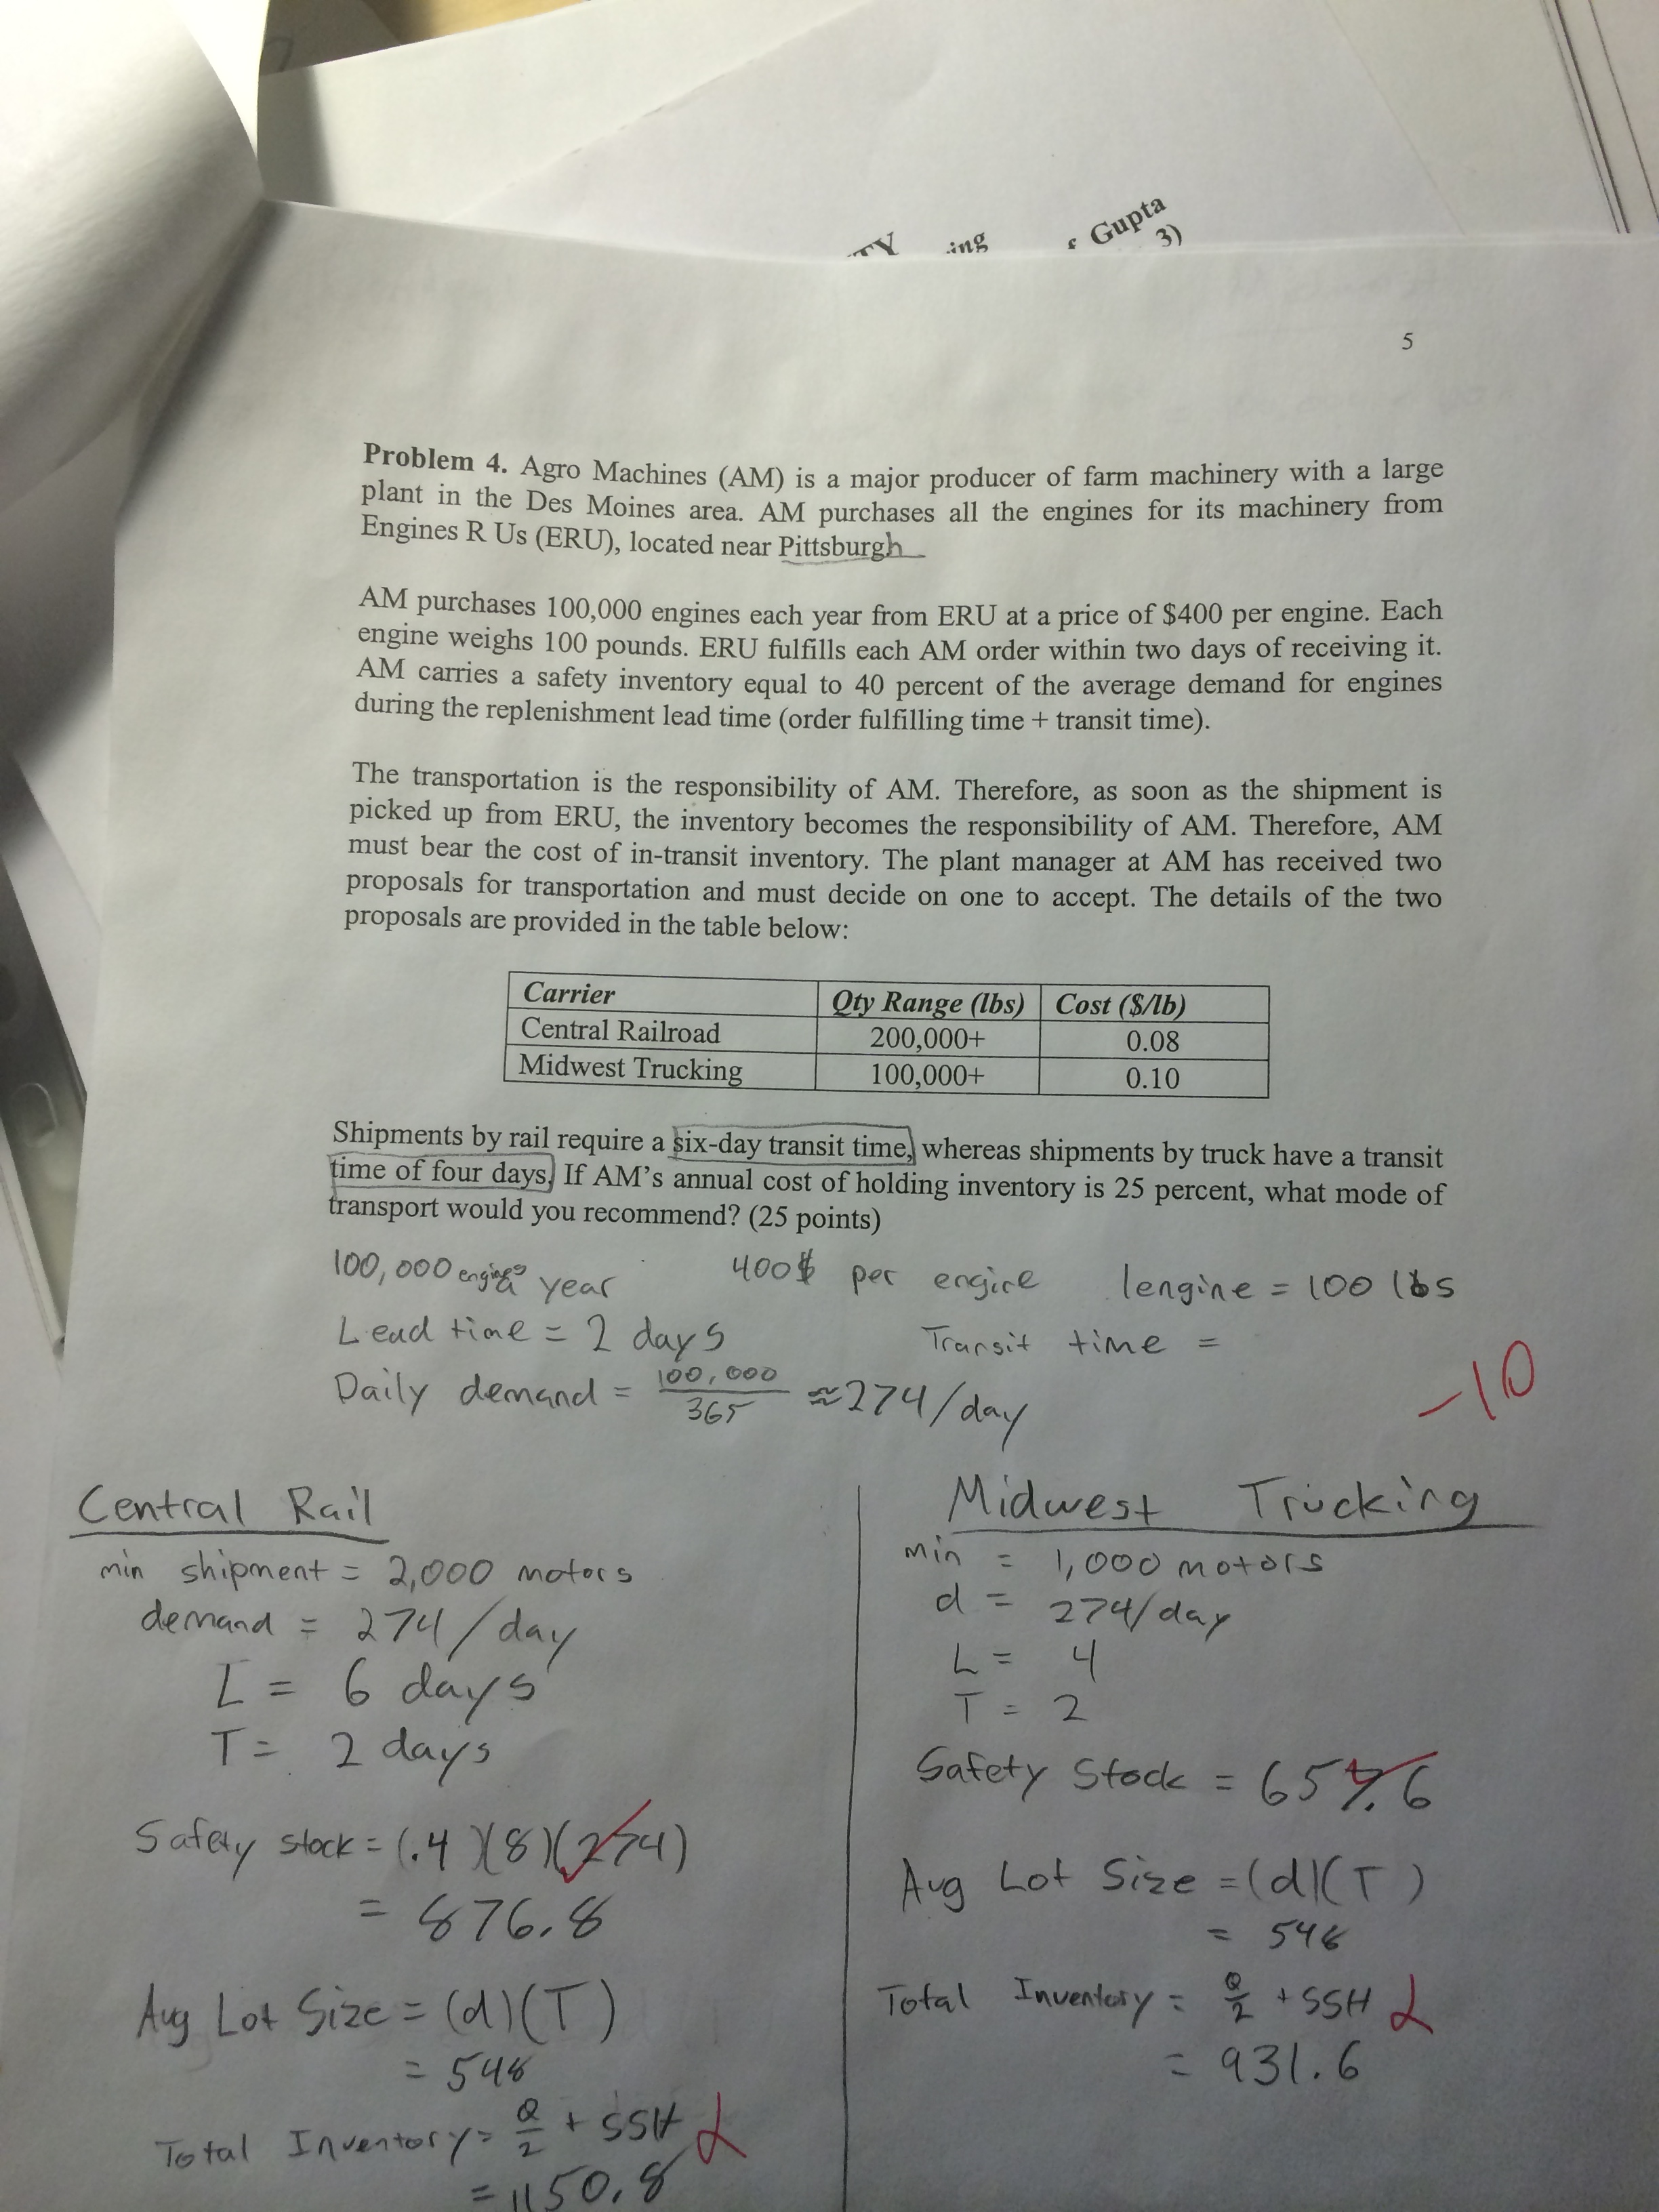 ing
Gupta
3)
5
Problem 4. Agro Machines (AM) is a major producer of farm machinery with a large
plant in the Des Moines area. AM purchases all the engines for its machinery from
Engines R Us (ERU), located near Pittsburgh
AM purchases 100,000 engines each year from ERU at a price of $400 per engine. Each
engine weighs 100 pounds. ERU fulfills each AM order within two days of receiving it.
AM carries a safety inventory equal to 40 percent of the average demand for engines
during the replenishment lead time (order fulfilling time + transit time).
The transportation is the responsibility of AM. Therefore, as soon as the shipment is
picked up from ERU, the inventory becomes the responsibility of AM. Therefore, AM
must bear the cost of in-transit inventory. The plant manager at AM has received two
proposals for transportation and must decide on one to accept. The details of the two
proposals are provided in the table below:
Carrier Qty Range (lbs) Cost ($/lb)
Central Railroad 200,000+ 0.08
Midwest Trucking 100,000+ 0.10
Shipments by rail require a six-day transit time, whereas shipments by truck have a transit
time of four days. If AM's annual cost of holding inventory is 25 percent, what mode of
transport would you recommend? (25 points)
100,000 engines a year 400$ per engine 1engine = 100 lbs
Lead time = 2 days Transit time =
Daily demand = 100,000 / 365 ≈ 274/day
-10
Central Rail
min shipment = 2,000 motors
demand = 274/day
L = 6 days
T = 2 days
Safety stock = (.4)(8)(274)
= 876.8
Avg Lot Size = (d)(T)
= 548
Total Inventory = Q/2 + SSH
= 1150.8
Midwest Trucking
min = 1,000 motors
d = 274/day
L = 4
T = 2
Safety Stock = 657.6
Avg Lot Size = (d)(T)
= 548
Total Inventory = Q/2 + SSH
= 931.6